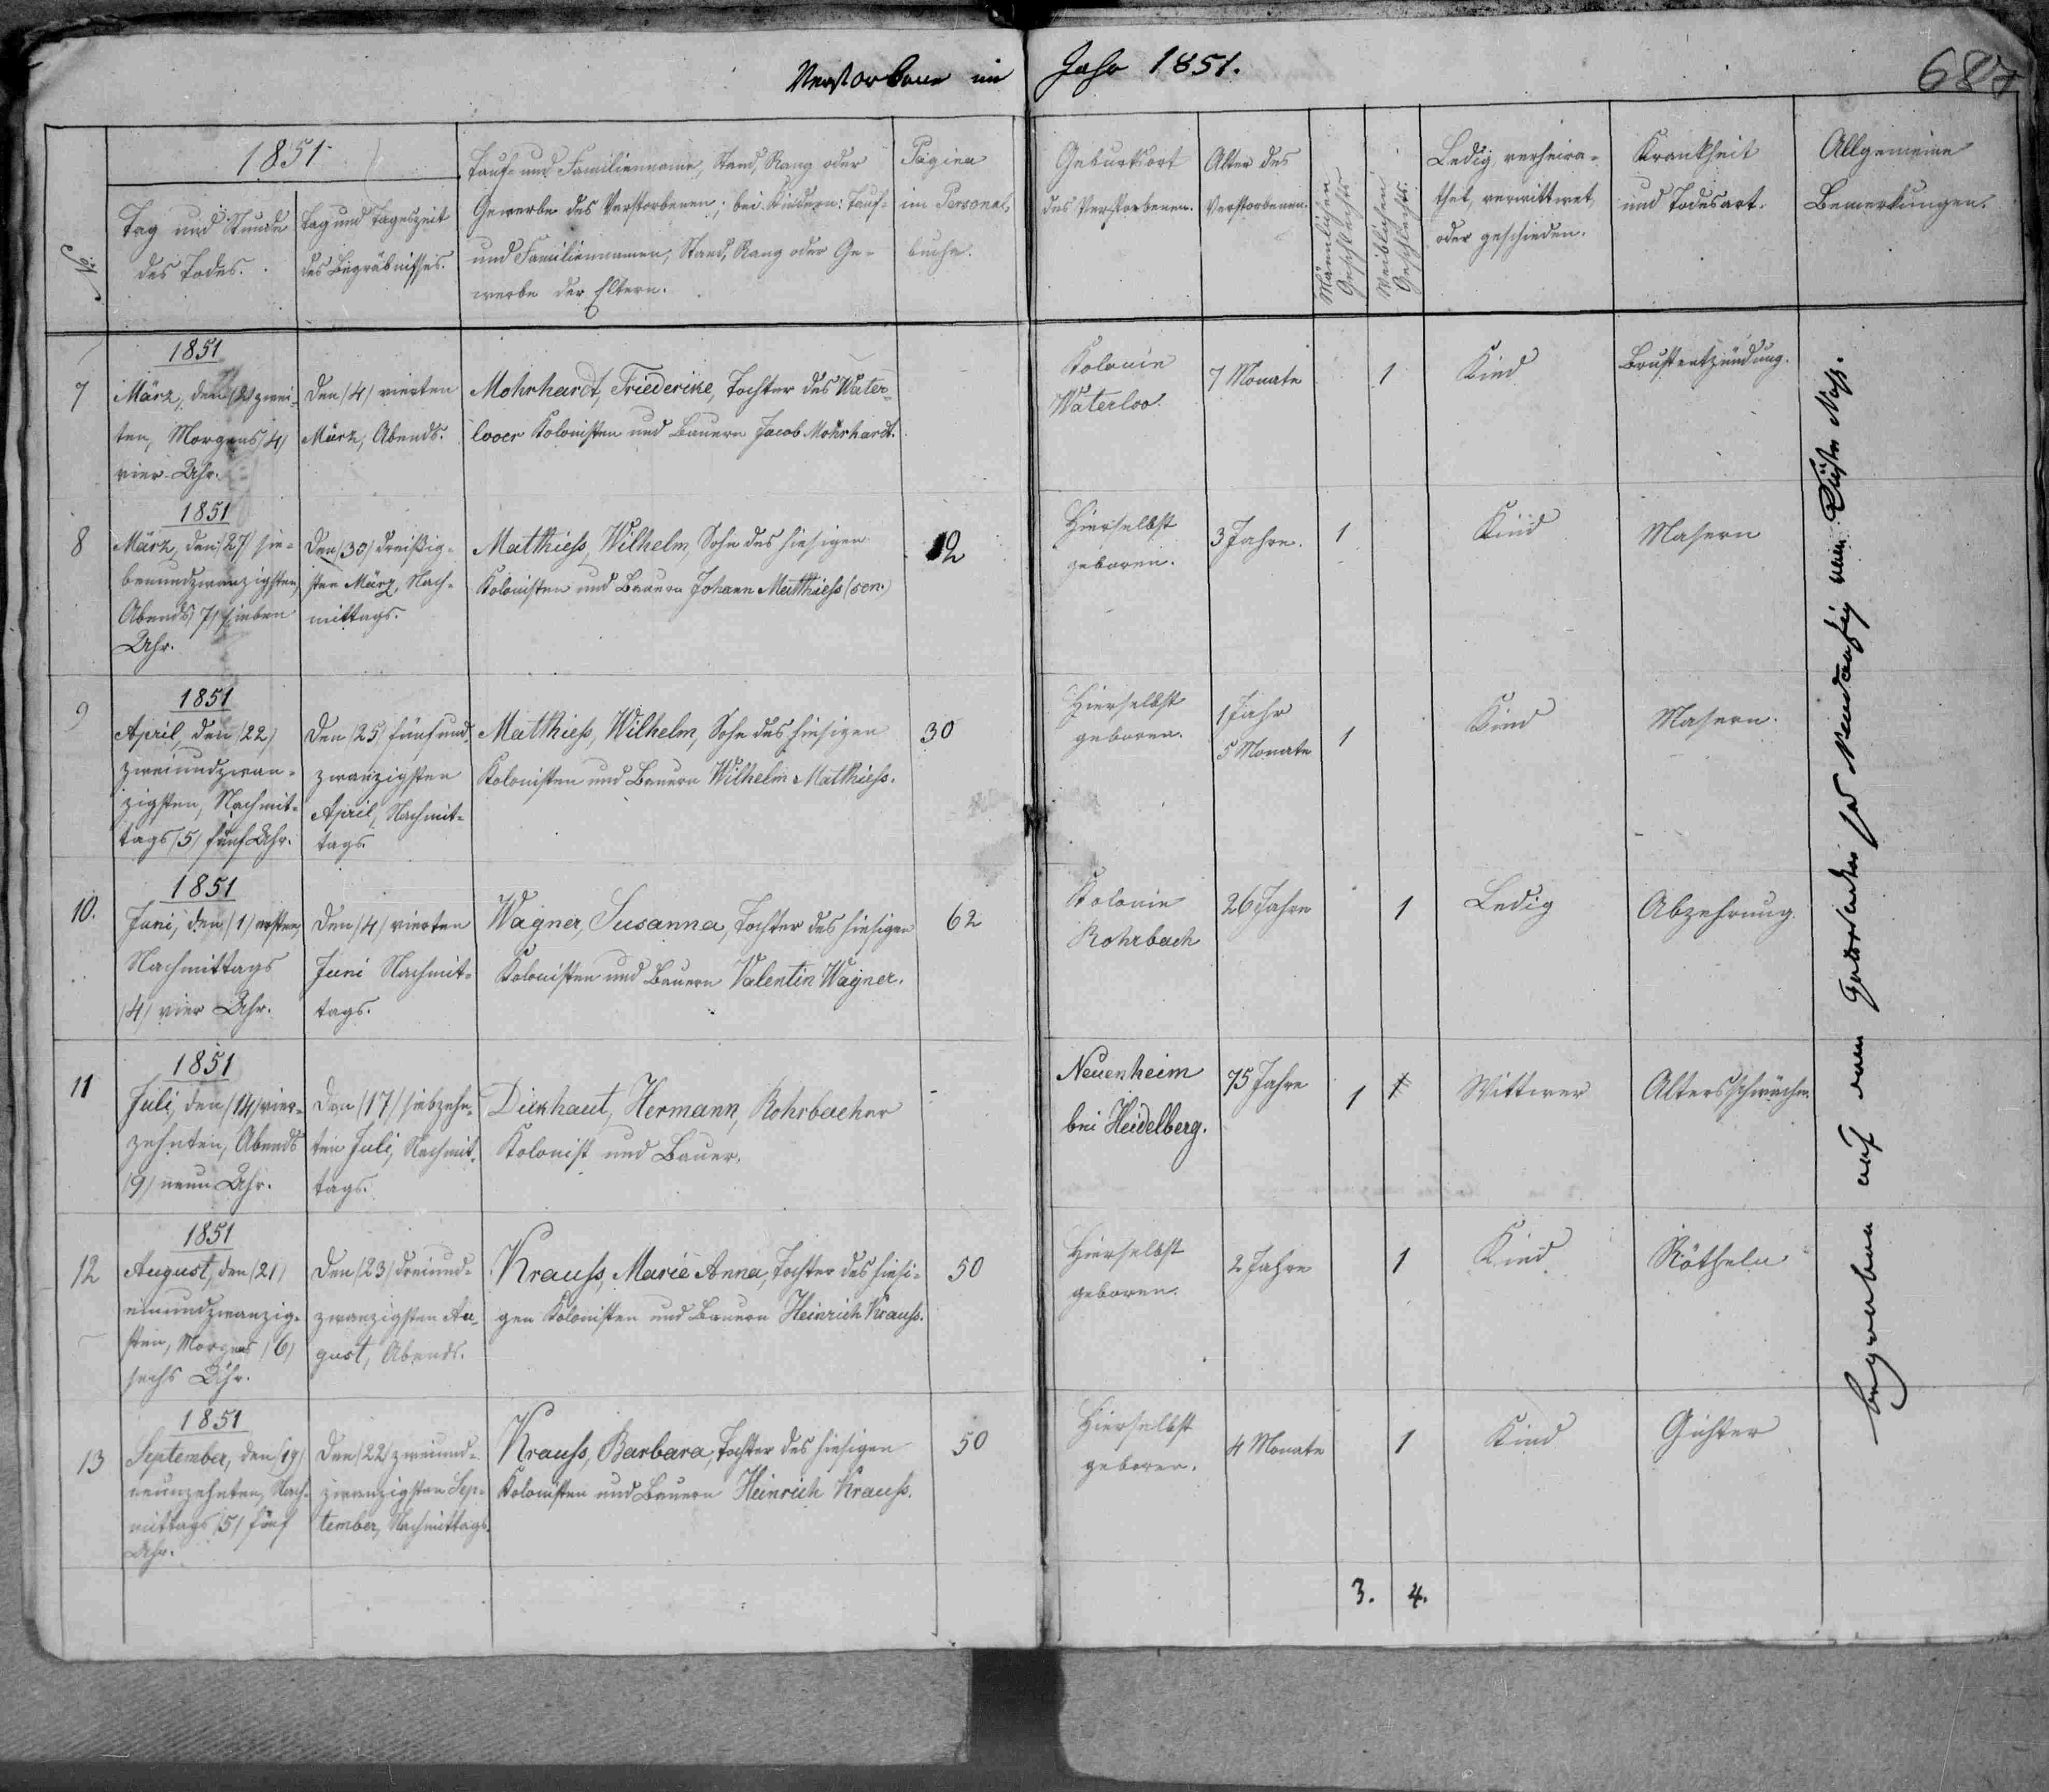 Verstorbene im Jahr 1851.
687
1851
No.
Tag und Stunde
des Todes.
Tag und Tageszeit
des Begräbnisses.
Tauf- und Familienname, Stand, Rang oder
Gewerbe des Verstorbenen; bei Kindern: Tauf-
und Familiennamen, Stand, Rang oder Ge-
werbe der Eltern.
Pagina
im Personal-
buche.
Geburtsort
des Verstorbenen.
Alter des
Verstorbenen.
Männlichen
Geschlechts
Weiblichen
Geschlechts.
Ledig, verheira-
thet, verwittwet,
oder geschieden.
Krankheit
und Todesart.
Allgemeine
Bemerkungen.
7
1851
März, den (2) zwei-
ten, Morgens (4)
vier Uhr.
Den (4) vierten
März, Abends.
Mohrhardt, Friederike, Tochter des Water-
looer Kolonisten und Bauern Jacob Mohrhardt.
Kolonie
Waterloo.
7 Monate
1
Kind
Brustentzündung.
8
1851
März, den (27) sie-
benundzwanzigsten,
Abends (7) sieben
Uhr.
Den (30) dreißig-
sten März, Nach-
mittags.
Matthiess, Wilhelm, Sohn des hiesigen
Kolonisten und Bauern Johann Matthiess (sen.)
12
Hierselbst
geboren.
3 Jahre.
1
Kind
Masern
9
1851
April, den (22)
zweiundzwan-
zigsten, Nachmit-
tags (5) fünf Uhr.
Den (25) fünfund-
zwanzigsten
April, Nachmit-
tags.
Matthiess, Wilhelm, Sohn des hiesigen
Kolonisten und Bauern Wilhelm Matthiess.
30
Hierselbst
geboren.
1 Jahr
5 Monate
1
Kind
Masern.
10.
1851
Juni, den (1) ersten,
Nachmittags
(4) vier Uhr.
Den (4) vierten
Juni Nachmit-
tags.
Wagner, Susanna, Tochter des hiesigen
Kolonisten und Bauern Valentin Wagner.
62
Kolonie
Rohrbach
26 Jahre
1
Ledig
Abzehrung.
11
1851
Juli, den (14) vier-
zehnten, Abends
(9) neun Uhr.
Den (17) siebzehn-
ten Juli, Nachmit-
tags.
Dickhaut, Hermann, Rohrbacher
Kolonist und Bauer.
-
Neuenheim
bei Heidelberg.
75 Jahre
1
1
Wittwer
Altersschwäche.
12
1851
August, den (21)
einundzwanzig-
sten, Morgens (6)
sechs Uhr.
Den (23) dreiund-
zwanzigsten Au-
gust, Abends.
Krauss, Marie Anna, Tochter des hiesi-
gen Kolonisten und Bauern Heinrich Krauss.
50
Hierselbst
geboren.
2 Jahre
1
Kind
Rötheln
13
1851
September, den (19)
neunzehnten, Nach-
mittags (5) fünf
Uhr.
Den (22) zweiund-
zwanzigsten Sep-
tember, Nachmittags.
Krauss, Barbara, Tochter des hiesigen
Kolonisten und Bauern Heinrich Krauss.
50
Hierselbst
geboren.
4 Monate
1
Kind
Gichter
3.
4.
begraben auf dem Gottesacker